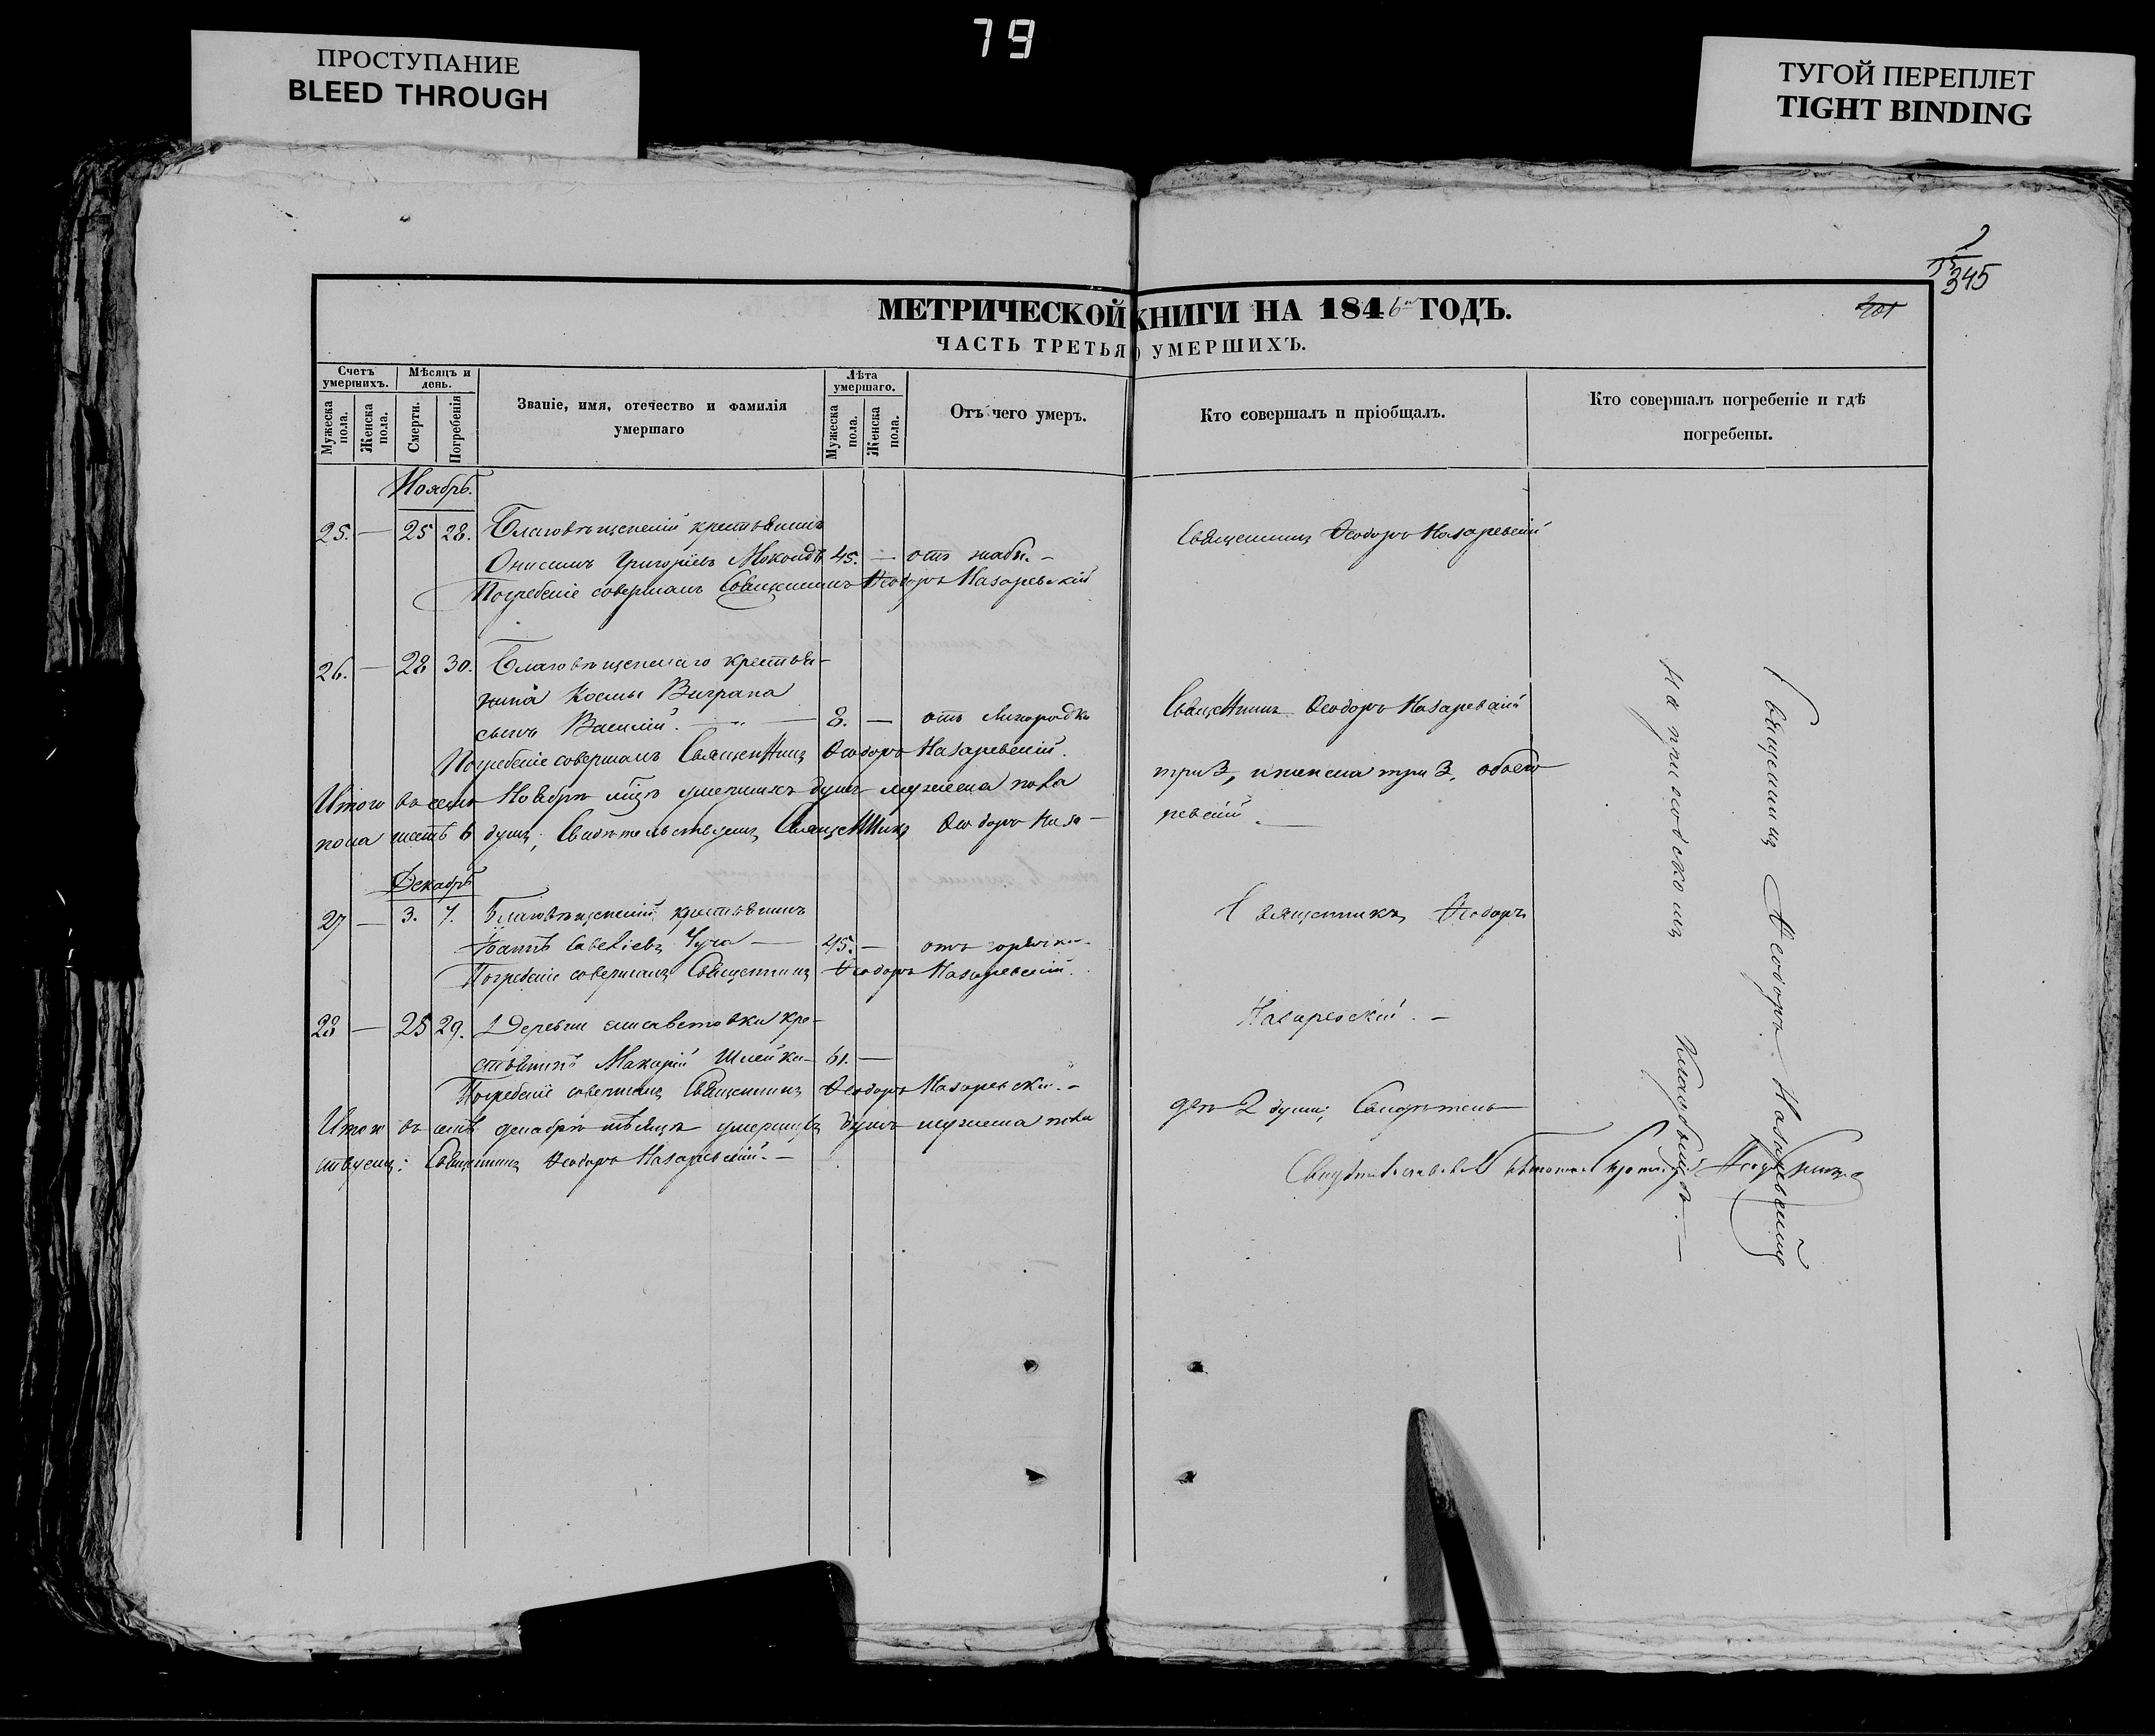 79
ПРОСТУПАНИЕ
BLEED THROUGH
ТУГОЙ ПЕРЕПЛЕТ
TIGHT BINDING
345
МЕТРИЧЕСКОЙ КНИГИ НА 1846 ГОДЪ.
ЧАСТЬ ТРЕТЬЯ О УМЕРШИХЪ.
Счетъ умершихъ.
Мужеска пола.
Женска пола.
Мѣсяцъ и день.
Смерти.
Погребенія
Званіе, имя, отечество и фамилія умершаго
Лѣта умершаго.
Мужеска пола.
Женска пола.
Отъ чего умеръ.
Кто совершалъ и пріобщалъ.
Кто совершалъ погребеніе и гдѣ погребены.
Ноябрь.
25. — 25 28. Благовѣщенскій крестьянинъ
Онисимъ Григоріевъ 45. — отъ жабы. —
Священникъ Ѳеодоръ Назаревскій
Погребеніе совершалъ Священникъ Ѳеодоръ Назаревскій
26. — 28 30. Благовѣщенскаго крестья-
нина Космы
сынъ Василій. — 8. — отъ лихорадки
Священникъ Ѳеодоръ Назаревскій
Погребеніе совершалъ Священникъ Ѳеодоръ Назаревскій.
Итого въ семъ Ноябрѣ мѣцѣ умершихъ душъ мужеска пола три 3, и женска три 3, обоего
пола шесть 6 душъ; Свидѣтельствуетъ Священникъ Ѳеодоръ Наза-
ревскій. —
Декабрь
27 — 3. 7. Благовѣщенскій крестьянинъ
Савеліевъ 45. — отъ горячки. —
Священникъ Ѳеодоръ
Погребеніе совершалъ Священникъ Ѳеодоръ Назаревскій.
28 — 25 29. Деревни елисаветовки кре-
стьянинъ Макарій 61. —
Назаревскій. —
Погребеніе совершалъ Священникъ Ѳеодоръ Назаревскій. —
Итого въ семъ декабрѣ мѣсяцѣ умершихъ душъ мужеска пола двѣ 2 души; Свидѣтель-
ствуетъ: Священникъ Ѳеодоръ Назаревскій. —
На приходскомъ кладбищѣ. —
Священникъ Ѳеодоръ Назаревскій